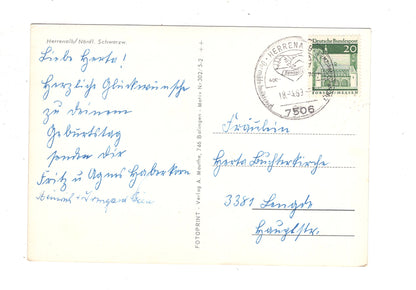 Herrenalb/Nördl. Schwarzw.
Liebe Herta!
Herzliche Glückwünsche
zu deinem
Geburtstag
senden dir
Fritz u Agnes Haberkorn
FOTOPRINT - Verlag A. Mauthe, 746 Balingen - Märlo Nr. 302/5-2 ++
HERRENA
18.-4.67
7506
Deutsche Bundespost
20
Fräulein
Herta Buchterkirche
3381 Lengde
Hauptstr.